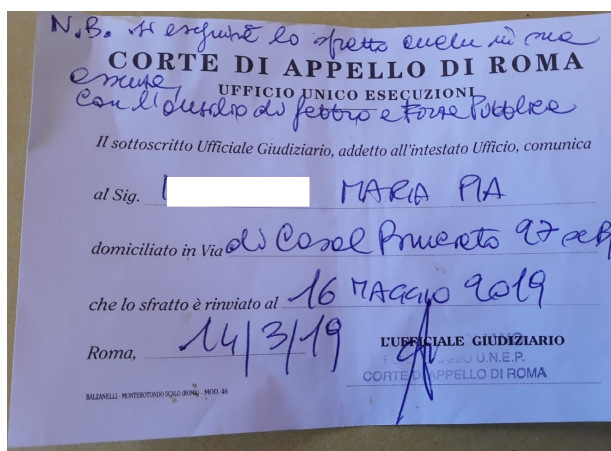 N.B. si eseguirà lo sfratto anche in sua
CORTE DI APPELLO DI ROMA
assenza,
UFFICIO UNICO ESECUZIONI
con l'ausilio di fabbro e Forza Pubblica
Il sottoscritto Ufficiale Giudiziario, addetto all'intestato Ufficio, comunica
al Sig. MARIA PIA
domiciliato in Via di Casal Bruciato 97
che lo sfratto è rinviato al 16 MAGGIO 2019
Roma, 14/3/19
L'UFFICIALE GIUDIZIARIO
U.N.E.P.
CORTE D'APPELLO DI ROMA
BALZANELLI - MONTEROTONDO SCALO (ROMA) - MOD. 46